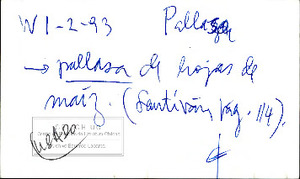 W 1-2-93 Pallasa
→ pallasa de hojas de
maíz. (Santiván, pág. 114).